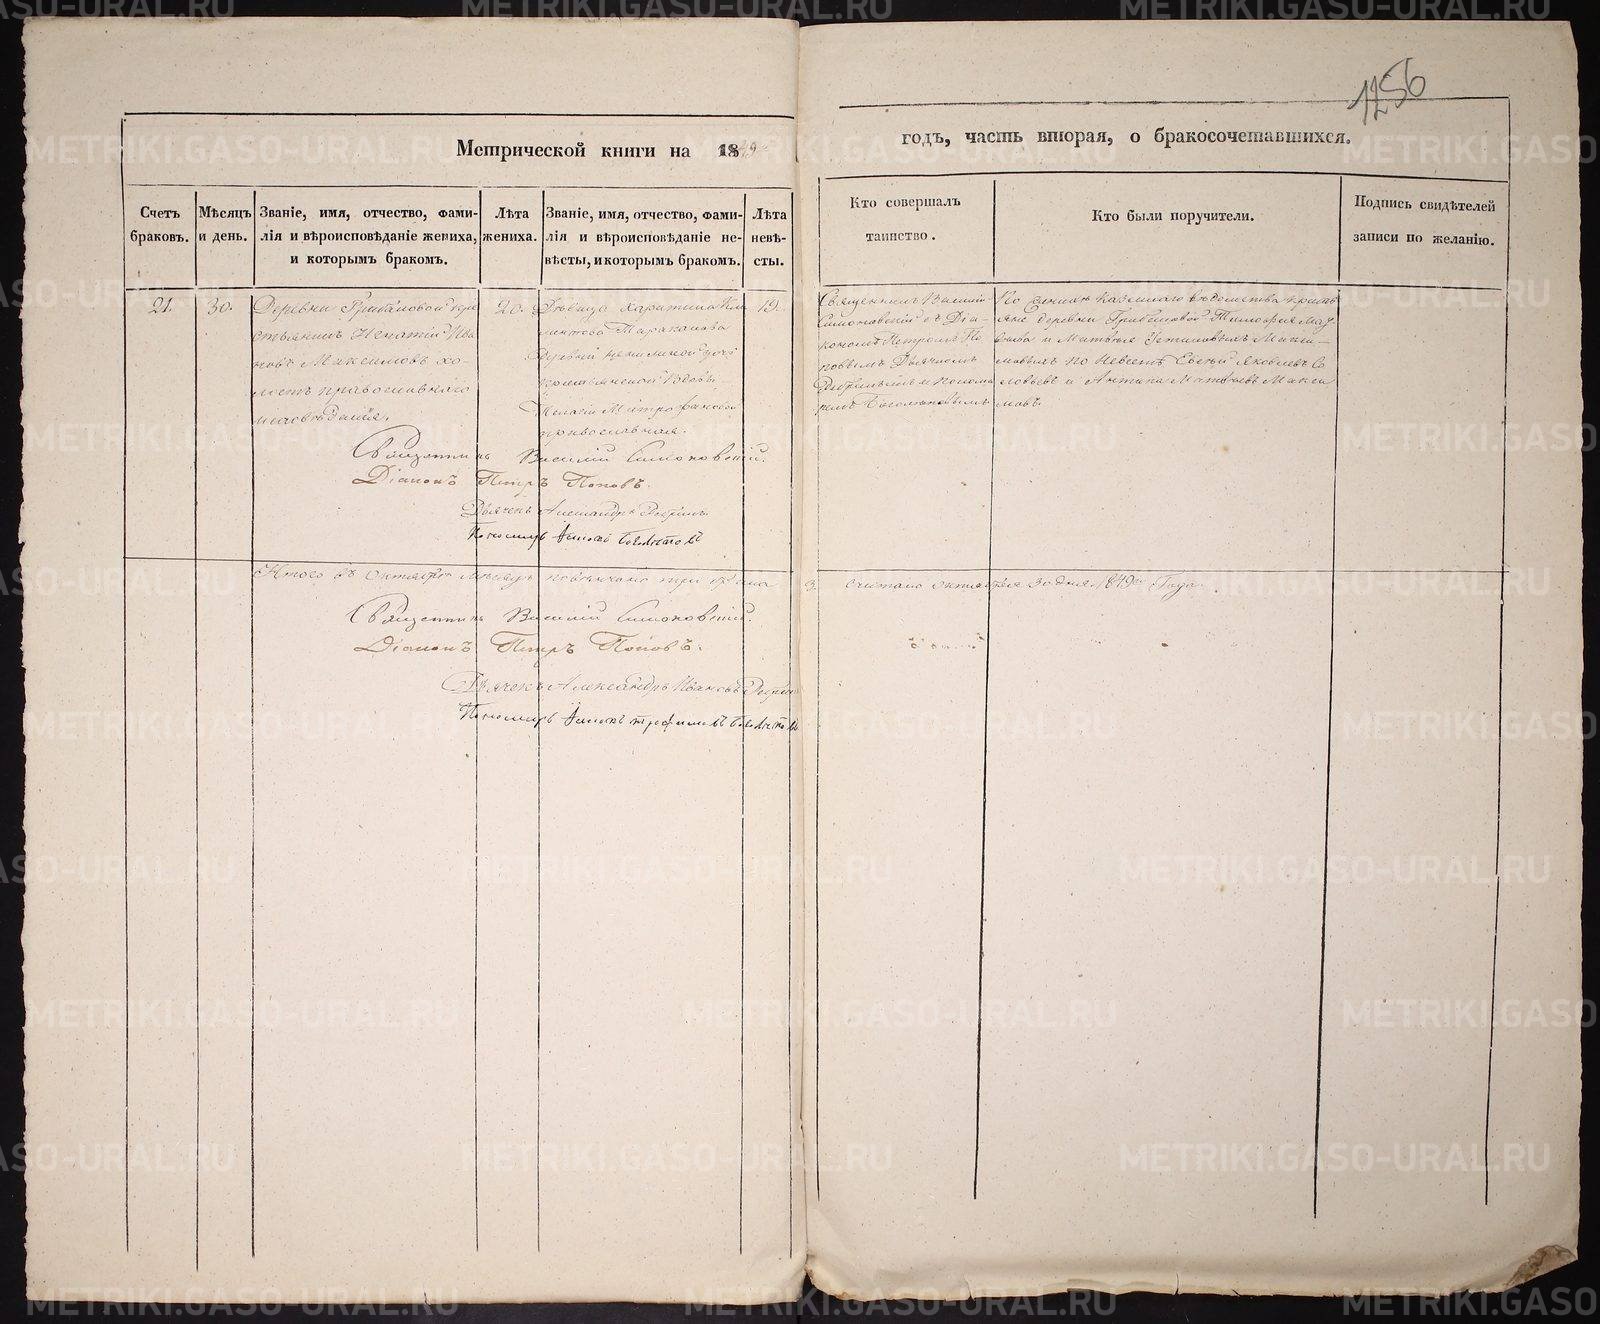 1256
Метрической книги на 1849
годъ, часть вторая, о бракосочетавшихся.
Счетъ браковъ.
Мѣсяцъ и день.
Званіе, имя, отчество, фами-
лія и вѣроисповѣданіе жениха,
и которымъ бракомъ.
Лѣта
жениха.
Званіе, имя, отчество, фами-
лія и вѣроисповѣданіе не-
вѣсты, и которымъ бракомъ.
Лѣта
невѣ-
сты.
Кто совершалъ
таинство.
Кто были поручители.
Подпись свидѣтелей
записи по желанію.
21.
30.
Деревни Грибановой кре
стьянинъ Игнатій Ива
новъ Максимовъ хо-
лостъ православнаго
исповѣданія.
20.
Дѣвица Харитина Кли
ментова Тараканова
Деревни дочь
крестьянской вдовы
Пелагіи Митрофановой
православная.
19.
Священникъ Василій
Симоновскій съ Діа-
кономъ Петромъ По
повымъ Дьячкомъ
и Понома
ремъ
По женихѣ казеннаго вѣдомства кресть
яне деревни Грибановой Тимофея
и Матвѣя Макси
мовыхъ по невестѣ Евсѣй Яковлевъ Со
ловьевъ и Антипа Матвѣевъ Макси
мовъ.
Священникъ Василій Симоновскій.
Діаконъ Петръ Поповъ.
Дьячекъ Александръ
Пономарь
Итого въ октябрѣ мѣсяцѣ повѣнчано три брака 3. Считано октября 30 дня 1849го Года.
Священникъ Василій Симоновскій.
Діаконъ Петръ Поповъ.
Дьячекъ Александръ Ивановъ
Пономарь Трофимовъ
METRIKI.GASO-URAL.RU